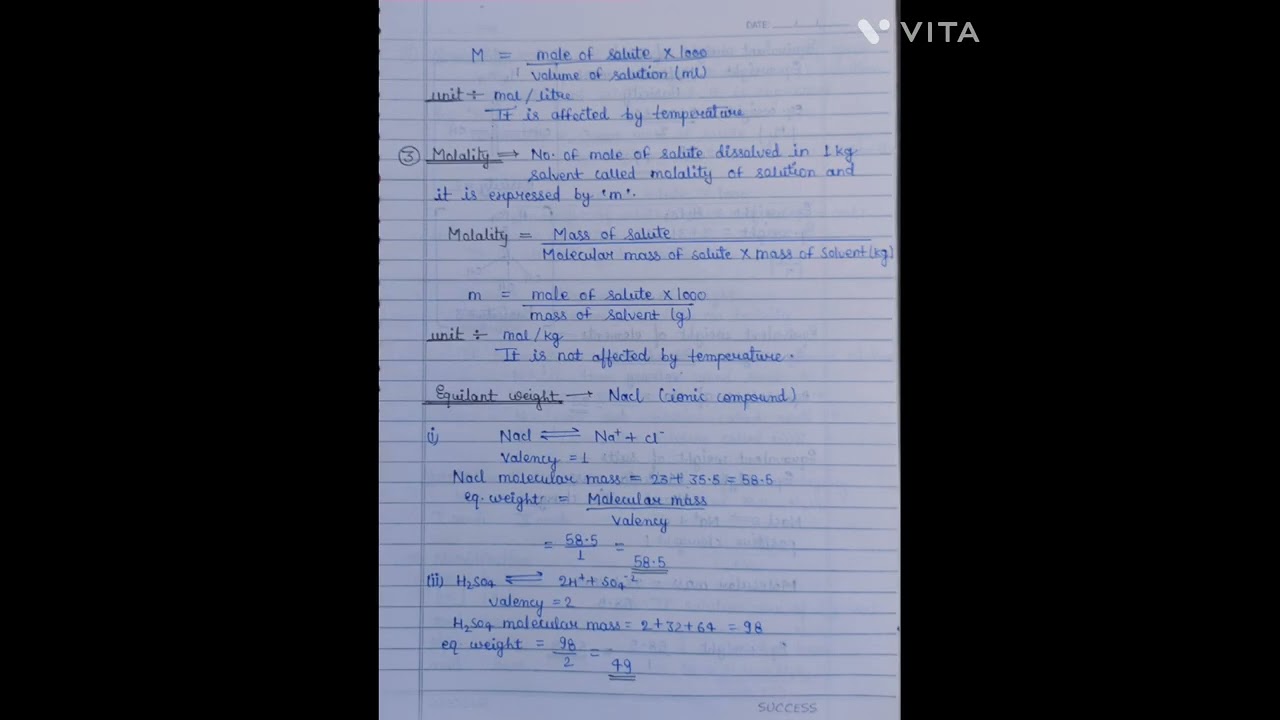 DATE
VITA
M = mole of salute × 1000
volume of solution (ml)
unit ÷ mol/litre
It is affected by temperature
③ Molality → No. of mole of salute dissolved in 1 kg
salvent called molality of solution and
it is expressed by 'm'.
Molality = Mass of salute
Molecular mass of salute × mass of solvent (kg)
m = mole of salute × 1000
mass of salvent (g)
unit ÷ mol/kg
It is not affected by temperature.
Equilant weight → Nacl (ionic compound)
(i) Nacl ⇌ Na⁺ + cl⁻
valency = 1
Nacl molecular mass = 23 + 35.5 = 58.5
eq. weight = Molecular mass
Valency
= 58.5 =
1
58.5
(ii) H₂SO₄ ⇌ 2H⁺ + SO₄⁻²
valency = 2
H₂SO₄ molecular mass = 2+32+64 = 98
eq weight = 98 =
2
49
SUCCESS